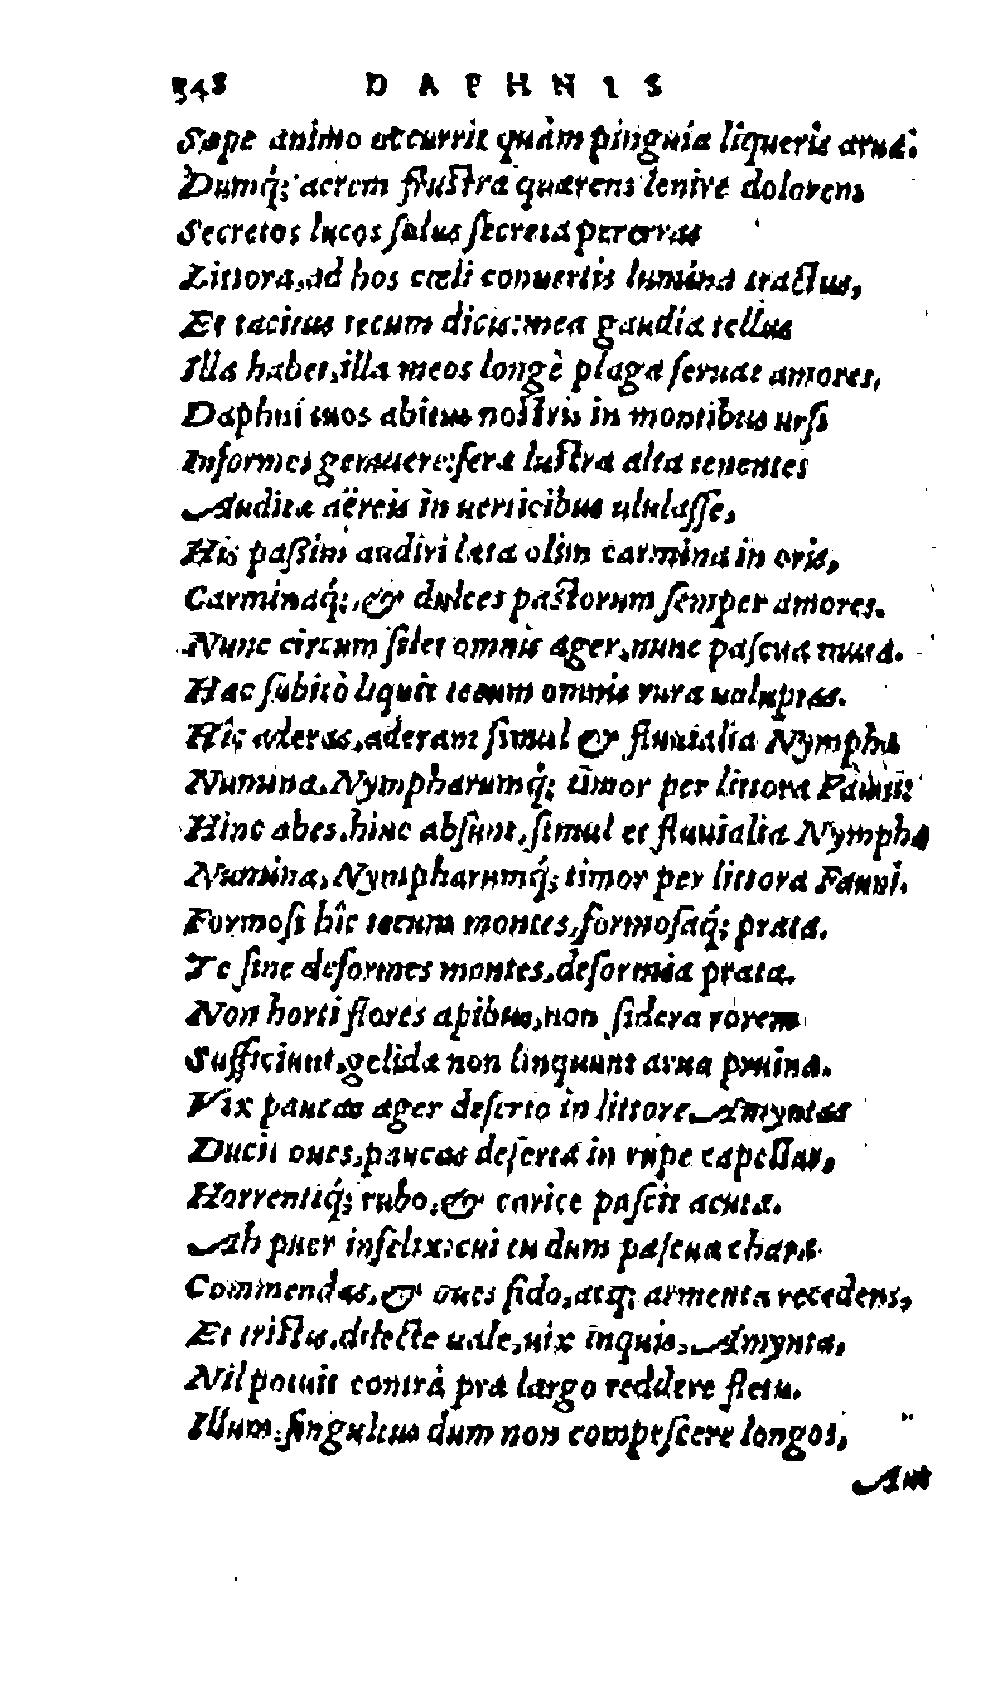 348 DAPHNIS
Sæpe animo occurrit quàm pinguia liqueris arua.
Dumq́; acrem frustra quærens lenire dolorem
Secretos lucos solus secreta pererras
Littora, ad hos cœli conuertis lumina tractus,
Et tacitus tecum dicis: mea gaudia tellus
Illa habet, illa meos longè plaga seruat amores,
Daphni tuos abitus nostris in montibus ursi
Informes gemuere: feræ lustra alta tenentes
Auditæ aëreis in uerticibus ululasse,
His passim audiri læta olim carmina in oris,
Carminaq́;, & dulces pastorum semper amores.
Nunc circum silet omnis ager, nunc pascua muta.
Hac subitò liquit tecum omnis rura uoluptas.
Hîc aderas, aderant simul & fluuialia Nymphæ
Numina, Nympharumq́; timor per littora Fauni:
Hinc abes, hinc absunt, simul et fluuialia Nymphæ
Numina, Nympharumq́; timor per littora Fauni.
Formosi hîc tecum montes, formosaq́; prata.
Te sine deformes montes, deformia prata.
Non horti flores apibus, non sidera rorem
Sufficiunt, gelidæ non linquunt arua pruinæ.
Vix paucas ager deserto in littore Amyntas
Ducit oues, paucas deserta in rupe capellas,
Horrentiq́; rubo, & carice pascit acuta.
Ah puer infelix: cui tu dum pascua chara
Commendas, & oues fido, atq; armenta recedens,
Et tristis, dilecte uale, uix inquis, Amynta,
Nil potuit contrà præ largo reddere fletu.
Illum, singultus dum non compescere longos,
Aut